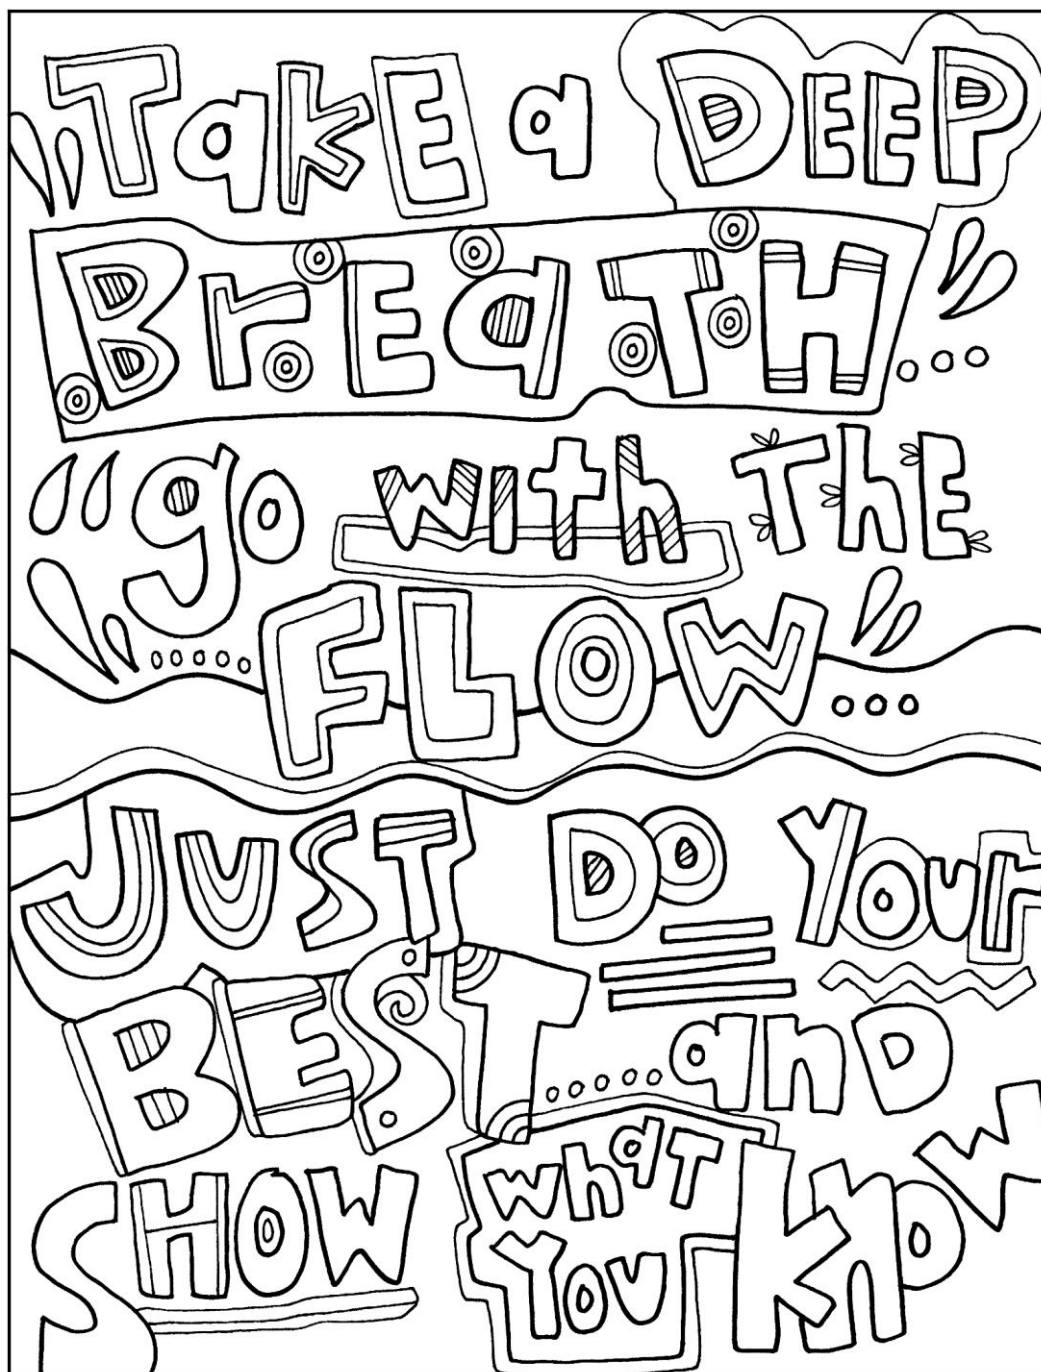 Take a DEEP
BrEaTH...
go with The
FLOW...
JUST Do Your
BEST.....anD
SHOW what
You know